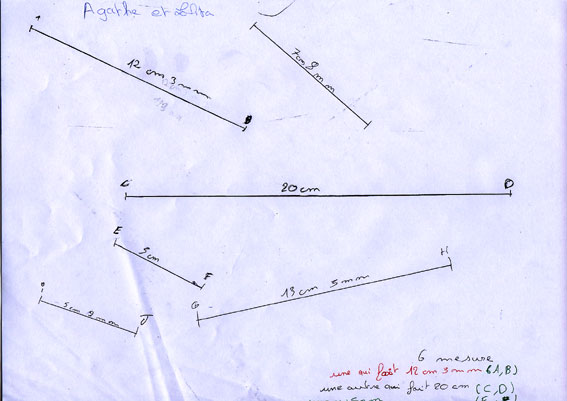 Agathe et
A
12 cm 3 mm
B
7 cm 8 mm
C
20 cm
D
E
5 cm
F
H
13 cm 5 mm
G
I
5 cm mm
J
6 mesure
une qui fait 12 cm 3 mm (A,B)
une autre qui fait 20 cm (C,D)